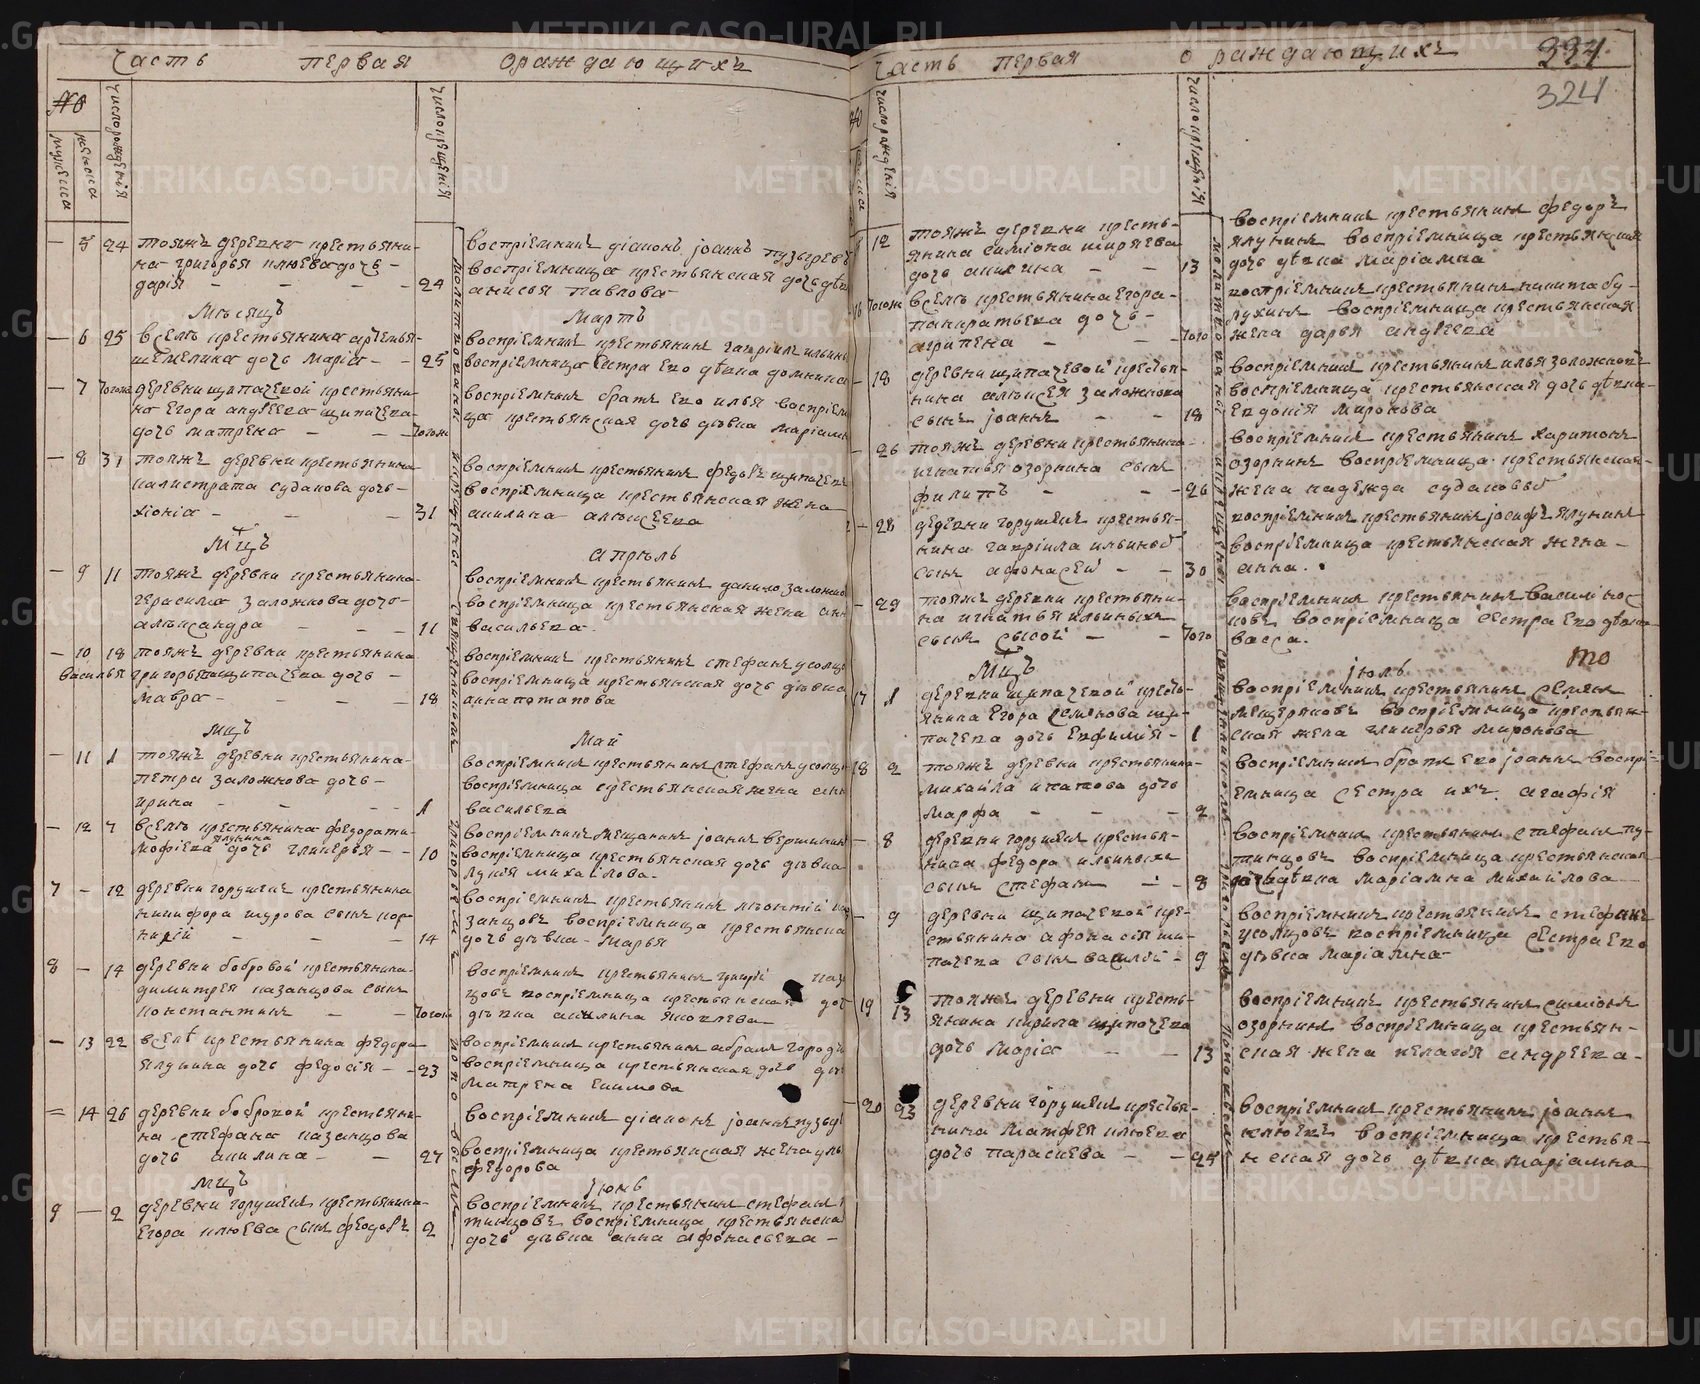 часть первая о раждающихъ
№
мужеска
женска
число рожденїя
число крещенїя
5 24 тояжъ деревни крестьяни-
на григорья клюева дочь -
дарїя - - - 24
воспрїемникъ дїаконъ їоаннъ пузыревъ
воспрїемница крестьянская дочь
анисья павлова
Месяцъ Мартъ
6 25 всемъ крестьянина артемья
шемелина дочь марїя - - 25
воспрїемникъ крестьянинъ гаврїилъ ильинъ
воспрїемница сестра его девка домникїя
7 тогожъ деревни щипачевой крестьяни-
на егора андреева щипачева
дочь матрена - - - тогожъ
воспрїемникъ братъ его илья воспрїем
ца крестьянская дочь девка
8 31 тояжъ деревни крестьянина
калистрата судакова дочь -
хїонїа - - - 31
воспрїемникъ крестьянинъ федоръ щипачевъ
воспрїемница крестьянская жена
акилина алексеева
Мцъ апрель
9 11 тояжъ деревни крестьянина
герасима заложнова дочь -
александра - - - 11
воспрїемникъ крестьянинъ данило заложнов
воспрїемница крестьянская жена анн
васильева
10 18 тояжъ деревни крестьянина
василья григорьева щипачева дочь -
мавра - - - 18
воспрїемникъ крестьянинъ стефанъ усольц
воспрїемница крестьянская дочь девка
анна потапова
Мцъ Май
11 1 тояжъ деревни крестьянина
петра заложнова дочь -
ирина - - - 1
воспрїемникъ крестьянинъ стефанъ усольц
воспрїемница крестьянская жена анн
васильева
12 7 всемъ крестьянина федора ти-
мофеева ялунина дочь гликерья - - 10
воспрїемникъ мещанинъ їоаннъ вершинин
воспрїемница крестьянская дочь девка
лукїя михайлова -
7 - 12 деревни горушекъ крестьянина
никифора шурова сынъ кор-
нилїй - - - 14
воспрїемникъ крестьянинъ леонтїй ка
занцовъ воспрїемница крестьянска
дочь девка - марья
8 - 14 деревни бобровой крестьянина
димитрея казанцова сынъ
константинъ - - тогожъ
воспрїемникъ крестьянинъ каз
цовъ воспрїемница крестьянская доч
девка акилина яковлева
13 22 всемъ крестьянина федора
ялунина дочь федосїя - - 23
воспрїемникъ крестьянинъ абрамъ
воспрїемница крестьянская дочь
матрена екимова
14 26 деревни бобровой крестьяни-
на стефана казанцова
дочь акилина - - 27
воспрїемникъ дїаконъ їоаннъ пузыр
воспрїемница крестьянская жена
федорова
Мцъ їюнь
9 - 2 деревни горушекъ крестьянина
егора клюева сынъ федоръ 2
воспрїемникъ крестьянинъ стефанъ
воспрїемница крестьянска
дочь девка анна афонасьева -
часть первая о раждающихъ 334.
324
число рожденїя
число крещенїя
12 тояжъ деревни кресть-
янина симїона ширяева
дочь акилина - - 13
воспрїемникъ крестьянинъ федоръ
ялунинъ воспрїемница крестьянская
дочь девка марїамна
16 тогожъ всемъ крестьянина егора
панкратьева дочь -
агрипена - - того
воспрїемникъ крестьянинъ никита бу-
лухинъ воспрїемница крестьянская
жена дарья андреева
18 деревни щипачевой крестья-
нина алексея заложнова
сынъ їоаннъ - - 18
воспрїемникъ крестьянинъ илья заложной
воспрїемница крестьянская дочь девка
евдокїя миронова
26 тояжъ деревни крестьянина
игнатья озорнина сынъ
филипъ - - 26
воспрїемникъ крестьянинъ харитонъ
озорнинъ воспрїемница крестьянская
жена надежда судаковы
28 деревни горушекъ крестья-
нина гаврїила ильины
сынъ афонасей - - 30
воспрїемникъ крестьянинъ їосифъ ялунинъ
воспрїемница крестьянская жена -
анна.
29 тояжъ деревни крестьяни-
на игнатья ильиныхъ
сынъ сысой - - того
воспрїемникъ крестьянинъ василїй нос
ковъ воспрїемница сестра его девка
васса.
Мцъ їюль то
17 1 деревни щипачевой кресть-
янина егора семенова щи-
пачева дочь евфимїя - 1
воспрїемникъ крестьянинъ семенъ
мещеряковъ воспрїемница крестьян-
ская жена гликерья миронова
18 2 тояжъ деревни крестьянина
михайла ипатова дочь
марфа - - - 2
воспрїемникъ братъ его їоаннъ воспрї-
емница сестра ихъ агафїя
8 деревни горушекъ крестья-
нина федора ильиныхъ
сынъ стефанъ - - 8
воспрїемникъ крестьянинъ стефанъ пу-
тинцовъ воспрїемница крестьянская
дочь девка марїамна михайлова
9 деревни щипачевой кре-
стьянина афонасїя щи-
пачева сынъ василей - 9
воспрїемникъ крестьянинъ стефанъ
усольцовъ воспрїемница сестра его
девка марїамна
19 13 тояжъ деревни кресть-
янина кирила щипачева
дочь марїа - - 13
воспрїемникъ крестьянинъ симїонъ
озорнинъ воспрїемница крестьян-
ская жена пелагея андреева -
20 23 деревни горушекъ крестья-
нина матфея клюева
дочь параскева - - 25
воспрїемникъ крестьянинъ їоаннъ
клюевъ воспрїемница крестья-
нская дочь девка марїамна
METRIKI.GASO-URAL.RU